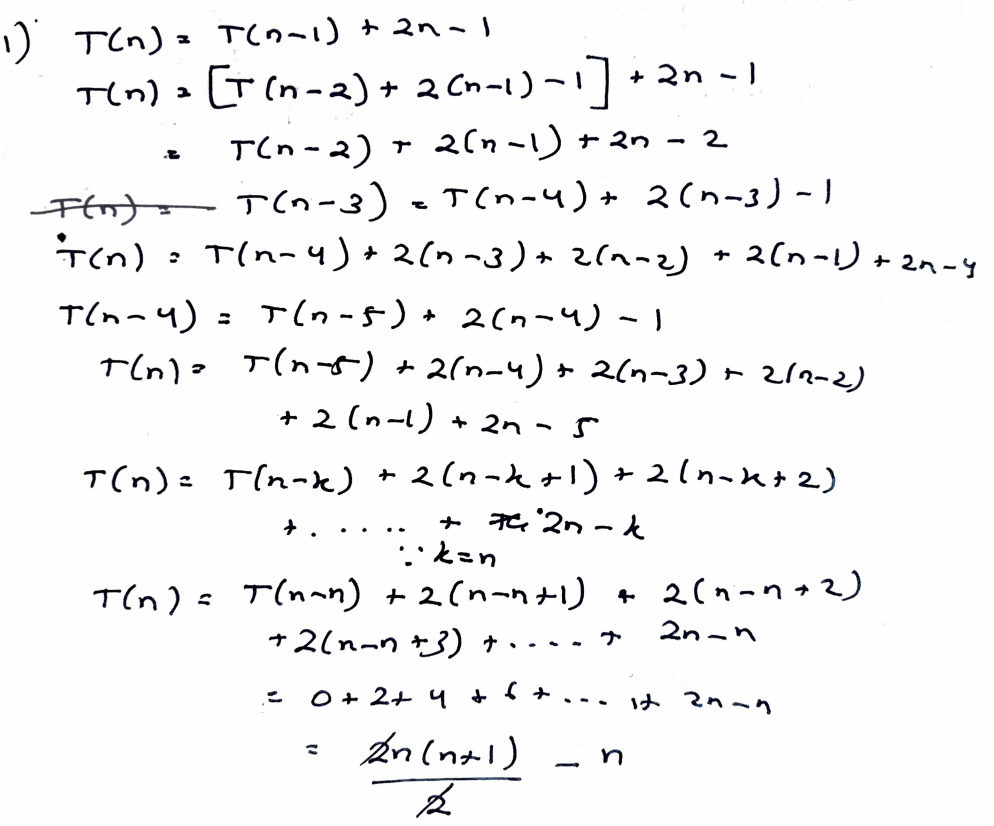 1) T(n) = T(n-1) + 2n - 1
T(n) = [T(n-2) + 2(n-1) - 1] + 2n - 1
= T(n-2) + 2(n-1) + 2n - 2
T(n) = T(n-3) = T(n-4) + 2(n-3) - 1
T(n) = T(n-4) + 2(n-3) + 2(n-2) + 2(n-1) + 2n - 4
T(n-4) = T(n-5) + 2(n-4) - 1
T(n) = T(n-5) + 2(n-4) + 2(n-3) + 2(n-2)
+ 2(n-1) + 2n - 5
T(n) = T(n-k) + 2(n-k+1) + 2(n-k+2)
+ . .... + 2n - k
∵ k=n
T(n) = T(n-n) + 2(n-n+1) + 2(n-n+2)
+ 2(n-n+3) + .... + 2n - n
= 0 + 2 + 4 + 6 + ... + 2n - n
= 2n(n+1) - n
2